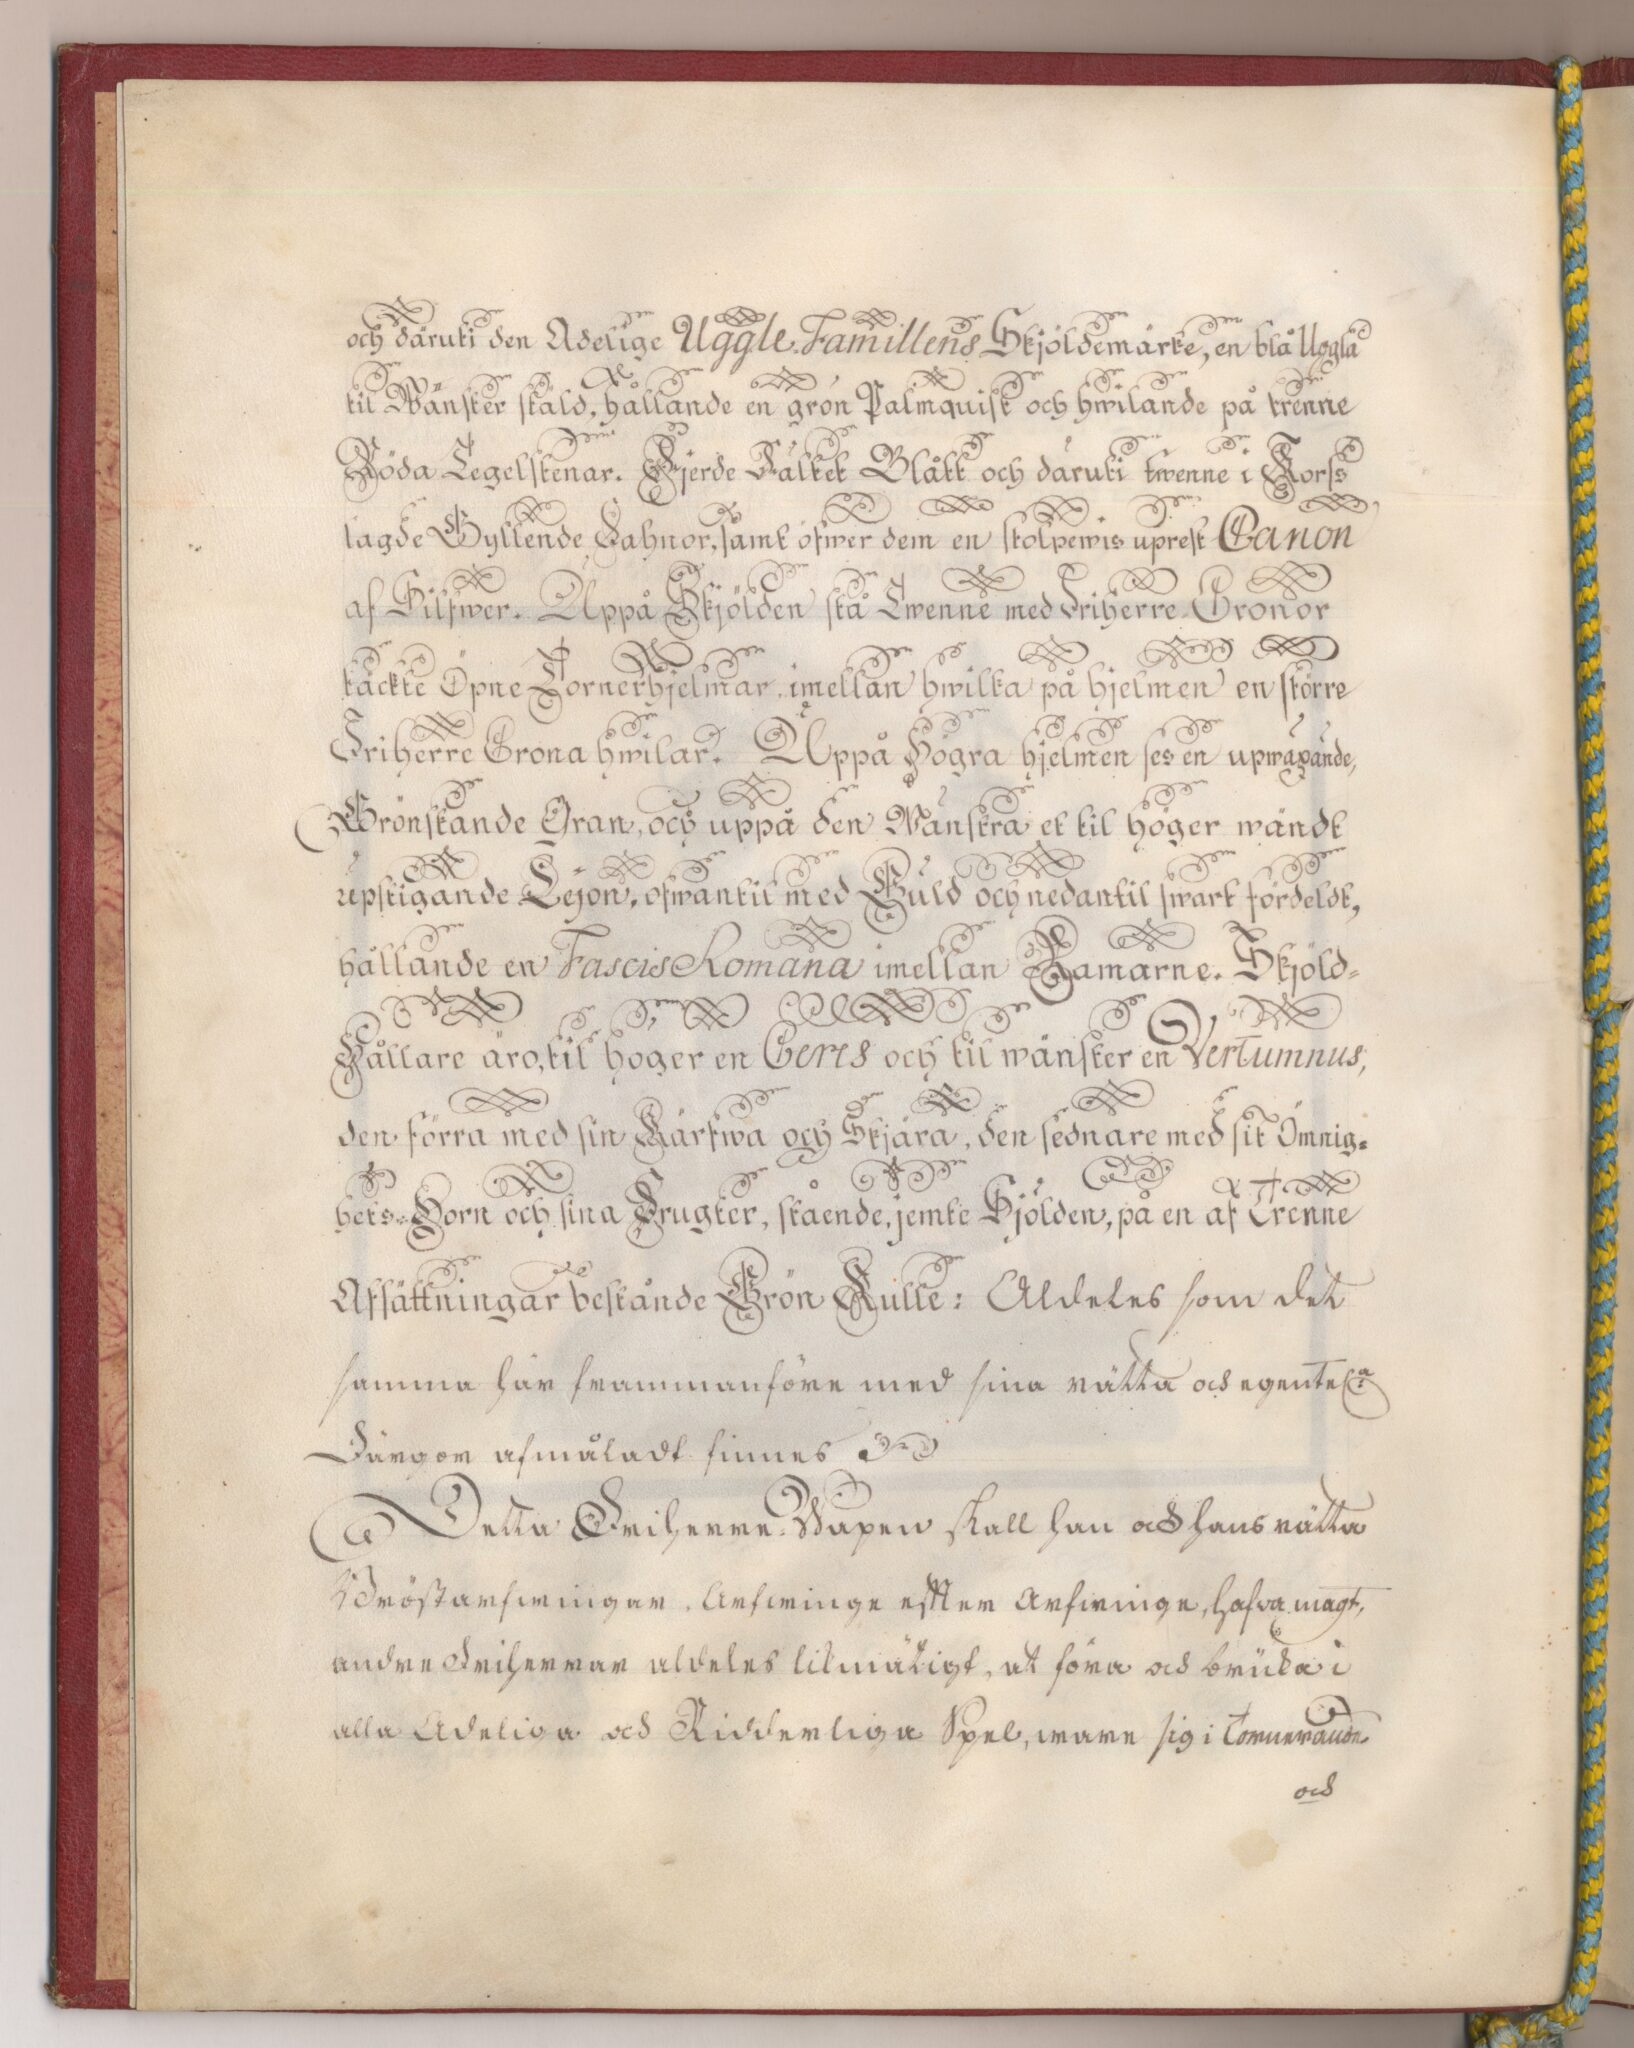 och däruti den Adelige Uggle-Famillens Skjöldemärke, en blå Uggla
til Wänster stäld, hållande en grön Palmquist och hwilande på trenne
Röda Tegelstenar. Fjerde Fältet Blått och däruti twenne i Kors
lagde Gyllende Fahnor, samt öfwer dem en stolpewis uprest Canon
af Silfwer. Uppå Skjölden stå Twenne med Friherre-Cronor
täckte Öpne Tornerhjelmar, imellan hwilka på hjelmen en större
Friherre Crona hwilar. Uppå Högra hjelmen ses en upwaxande,
Grönskande Gran, och uppå den Wänstra et til höger wändt
upstigande Lejon, ofwantil med Guld och nedantil swart fördeldt,
hållande en Fascis Romana imellan Ramarne. Skjöld-
Hållare äro, til höger en Ceres och til wänster en Vertumnus,
den förra med sin Kärfwa och Skjära, den sednare med sit Ömnig-
hets-Horn och sina Frugter, stående, jemte Skjölden, på en af Trenne
Afsättningar bestånde Grön Kulle: Aldeles som det
samma här frammanföre med sina rätta och egentela
Färgor afmåladt finnes
Detta Friherre-Wapen skall han och hans rätta
Bröstarfwingar, Arfwinge efter Arfwinge, hafva magt,
andre Friherrar aldeles likmätigt, at föra och brüka i
alla Adeliga och Ridderliga Spel, ware sig i Tornerande
och